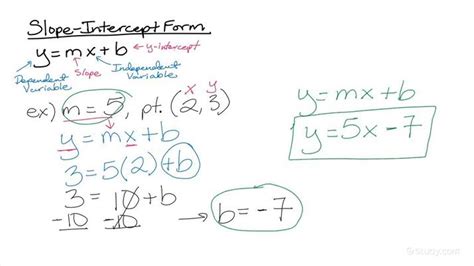 Slope-Intercept Form
y = mx + b ← y-intercept
Dependent Variable
Slope
Independent Variable
ex) m = 5, pt. (2, 3)
x y
y = mx + b
3 = 5(2) + b
3 = 10 + b
-10 -10
→ b = -7
y = mx + b
y = 5x - 7
Study.com